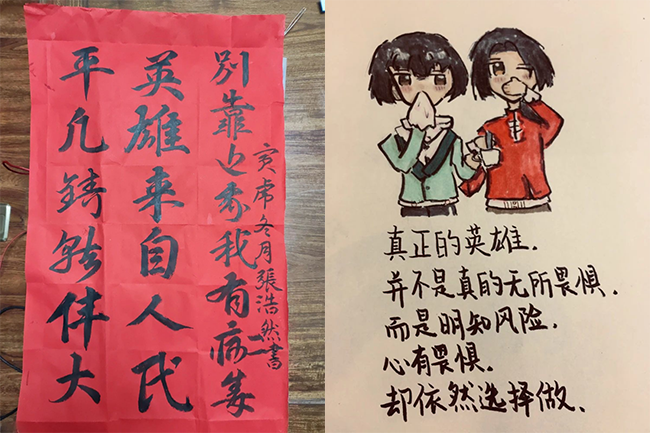 平凡鑄就伟大
英雄来自人民
别靠近我我有病毒
寅虎冬月張浩然書
真正的英雄.
并不是真的无所畏惧.
而是明知风险.
心有畏惧.
却依然选择做.